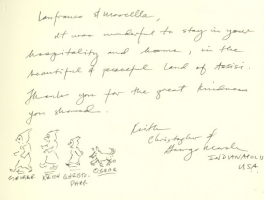 Lanfranco & Marcella,
It was wonderful to stay in your
hospitality and home, in the
beautiful & peaceful land of Assisi.
Thank you for the great kindness
you showed.
Keith
Christopher &
George
INDIANAPOLIS
USA
GEORGE KEITH CHRISTO-
PHER OSCAR